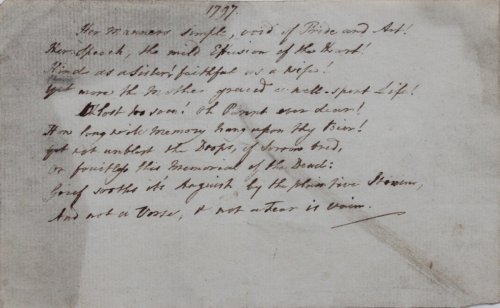 1797
Her Manners simple, void of Pride and Art!
Her Speech, the mild Effusion of the Heart!
Kind as a Sister! faithful as a Wife!
Yet more the Mother graced a well-spent Life!
O lost too soon! Oh Parent ever dear!
How long will Memory hang upon thy Bier!
Yet not unblest the Drops, if Sorrow bred,
Or fruitless this Memorial of the Dead:
Grief sooths its Anguish by the plaintive Strain,
And not a Verse, & not a Tear is vain.